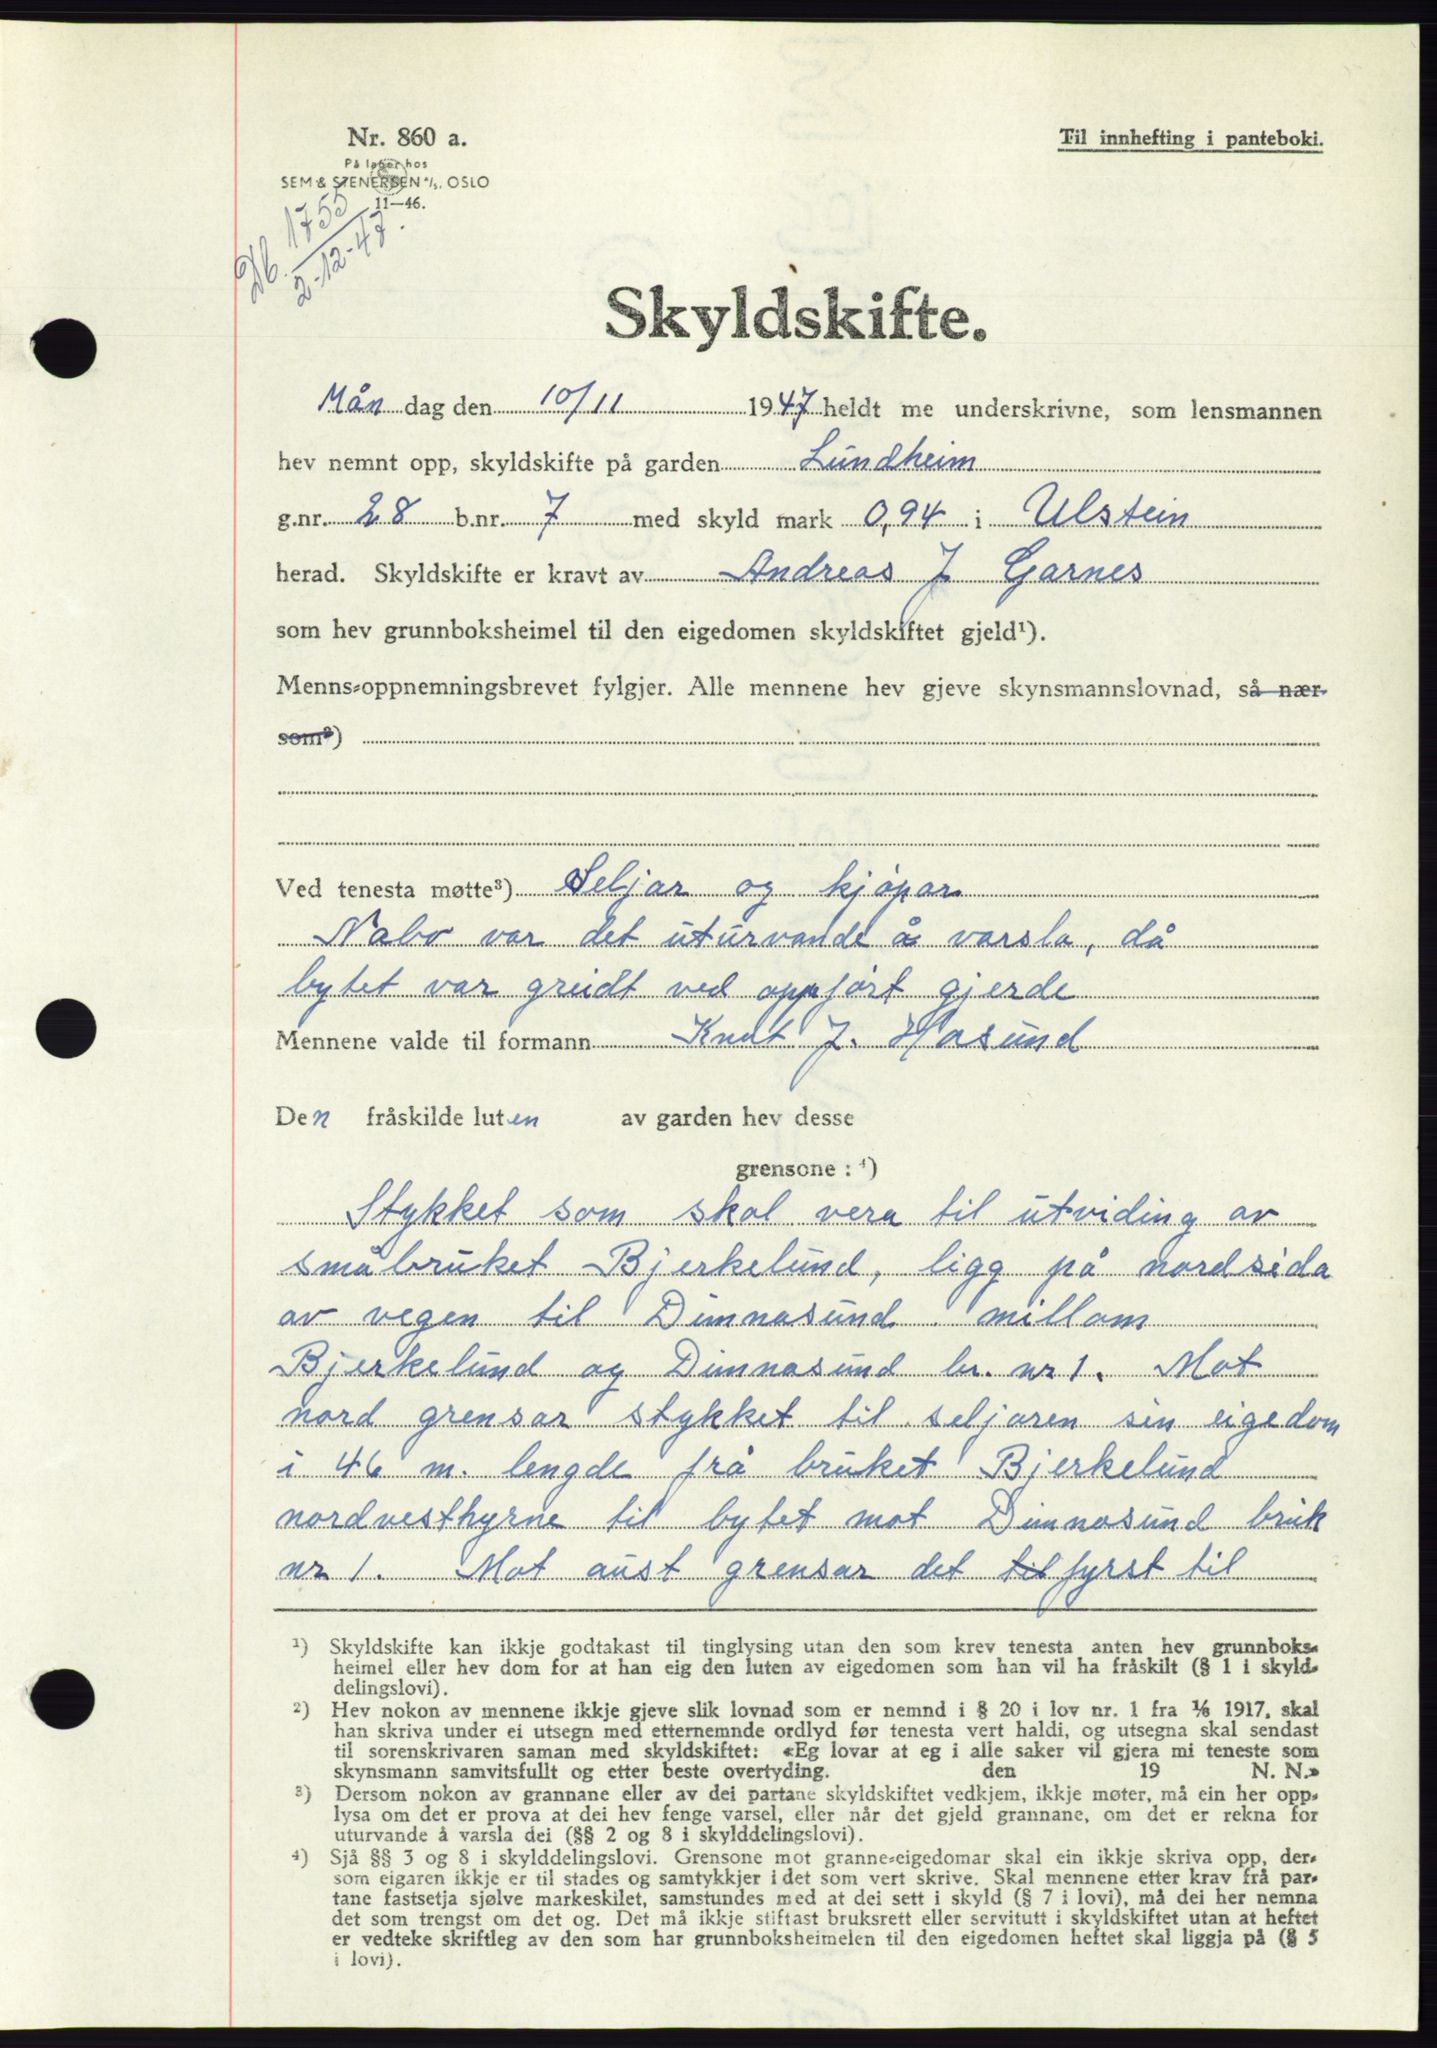 Nr. 860 a.
Til innhefting i panteboki.
På lager hos
SEM & STENERSEN A/S. OSLO
11—46.
Db. 1755
2-12-47.
Skyldskifte.
Mån dag den 10/11 1947 heldt me underskrivne, som lensmannen
hev nemnt opp, skyldskifte på garden Lundheim
g.nr. 28 b.nr. 7 med skyld mark 0,94 i Ulstein
herad. Skyldskifte er kravt av Andreas J Garnes
som hev grunnboksheimel til den eigedomen skyldskiftet gjeld¹).
Menns-oppnemningsbrevet fylgjer. Alle mennene hev gjeve skynsmannslovnad, så nær-
som²)
Ved tenesta møtte³) Seljar og kjøpar
Nabo var det uturvande å varsla, då
bytet var greidt ved oppført gjerde
Mennene valde til formann Knut J. Hasund
Den fråskilde luten av garden hev desse
grensone : ⁴)
Stykket som skal vera til utviding av
småbruket Bjerkelund, ligg på nordsida
av vegen til Dimnasund millom
Bjerkelund og Dimnasund br. nr 1. Mot
nord grensar stykket til seljaren sin eigedom
i 46 m. lengde frå bruket Bjerkelund
nordvesthyrne til bytet mot Dimnasund bruk
nr 1. Mot aust grensar det til fyrst til
¹) Skyldskifte kan ikkje godtakast til tinglysing utan den som krev tenesta anten hev grunnboks-
heimel eller hev dom for at han eig den luten av eigedomen som han vil ha fråskilt (§ 1 i skyld-
delingslovi).
²) Hev nokon av mennene ikkje gjeve slik lovnad som er nemnd i § 20 i lov nr. 1 fra 1/6 1917, skal
han skriva under ei utsegn med etternemnde ordlyd før tenesta vert haldi, og utsegna skal sendast
til sorenskrivaren saman med skyldskiftet: «Eg lovar at eg i alle saker vil gjera mi teneste som
skynsmann samvitsfullt og etter beste overtyding. den 19 N. N.»
³) Dersom nokon av grannane eller av dei partane skyldskiftet vedkjem, ikkje møter, må ein her opp-
lysa om det er prova at dei hev fenge varsel, eller når det gjeld grannane, om det er rekna for
uturvande å varsla dei (§§ 2 og 8 i skylddelingslovi).
⁴) Sjå §§ 3 og 8 i skylddelingslovi. Grensone mot granne-eigedomar skal ein ikkje skriva opp, der-
som eigaren ikkje er til stades og samtykkjer i det som vert skrive. Skal mennene etter krav frå par-
tane fastsetja sjølve markeskilet, samstundes med at dei sett i skyld (§ 7 i lovi), må dei her nemna
det som trengst om det og. Det må ikkje stiftast bruksrett eller servitutt i skyldskiftet utan at heftet
er vedteke skriftleg av den som har grunnboksheimelen til den eigedomen heftet skal liggja på (§ 5
i lovi).